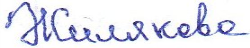 Жилякова